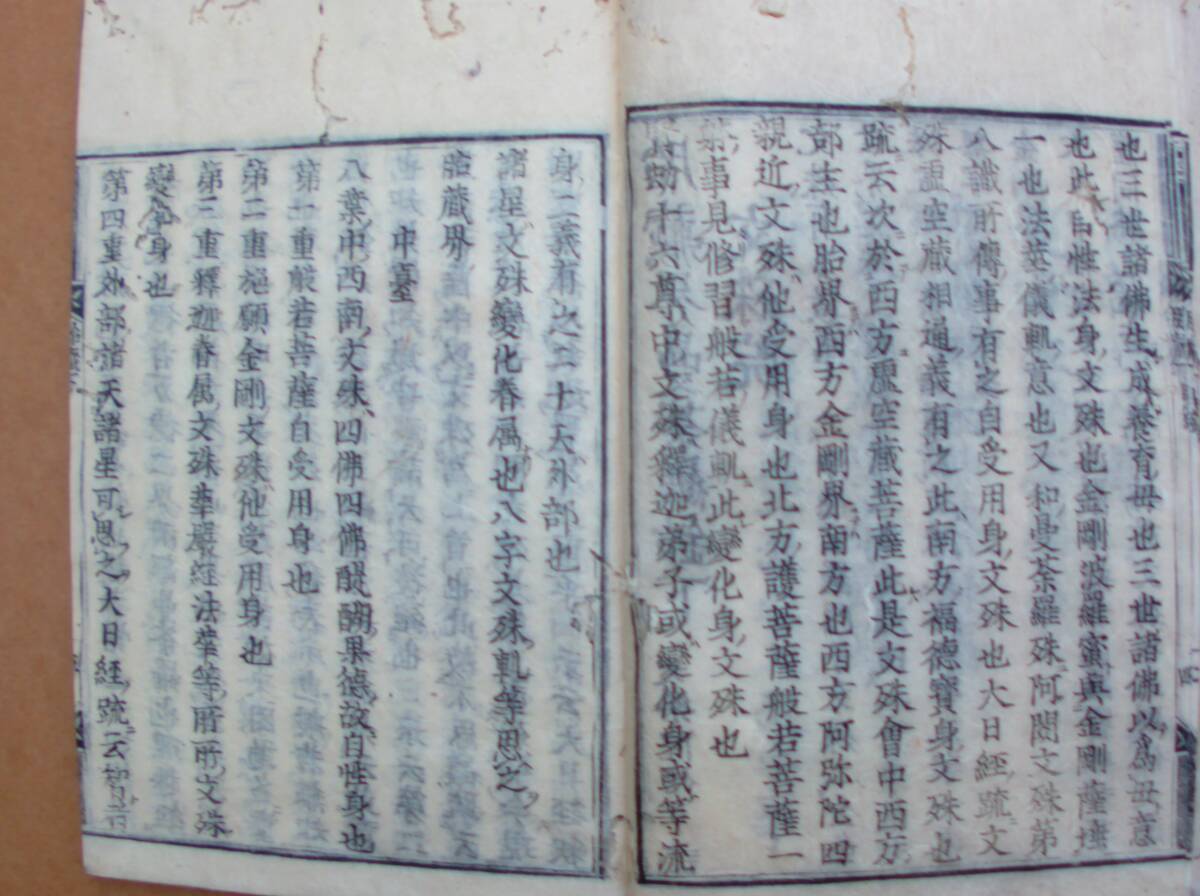 也三世諸佛生成養育母也三世諸佛以為母意
也此自性法身文殊也金剛波羅蜜與金剛薩埵
一也法華儀軌意也又和曼荼羅殊阿閦文殊第
八識所傳事有之自受用身文殊也大日經疏文
殊虛空藏相通義有之此南方福德寶身文殊也
疏云次於西方虛空藏菩薩此是文殊會中西方
部生也胎界西方金剛界南方也西方阿弥陀四
親近文殊他受用身也北方護菩薩般若菩薩一
葉事見修習般若儀軌此變化身文殊也
劫十六尊中文殊釋迦弟子或變化身或等流
身二義有之二十天外部也
諸星文殊變化眷属也八字文殊軌等思之
胎藏界
中臺
八葉中西南文殊四佛四佛醍醐果德故自性身也
第一重般若菩薩自受用身也
第二重施願金剛文殊他受用身也
第三重釋迦眷属文殊華嚴經法華等所所文殊
變化身也
第四重外部諸天諸星可思之大日經疏云